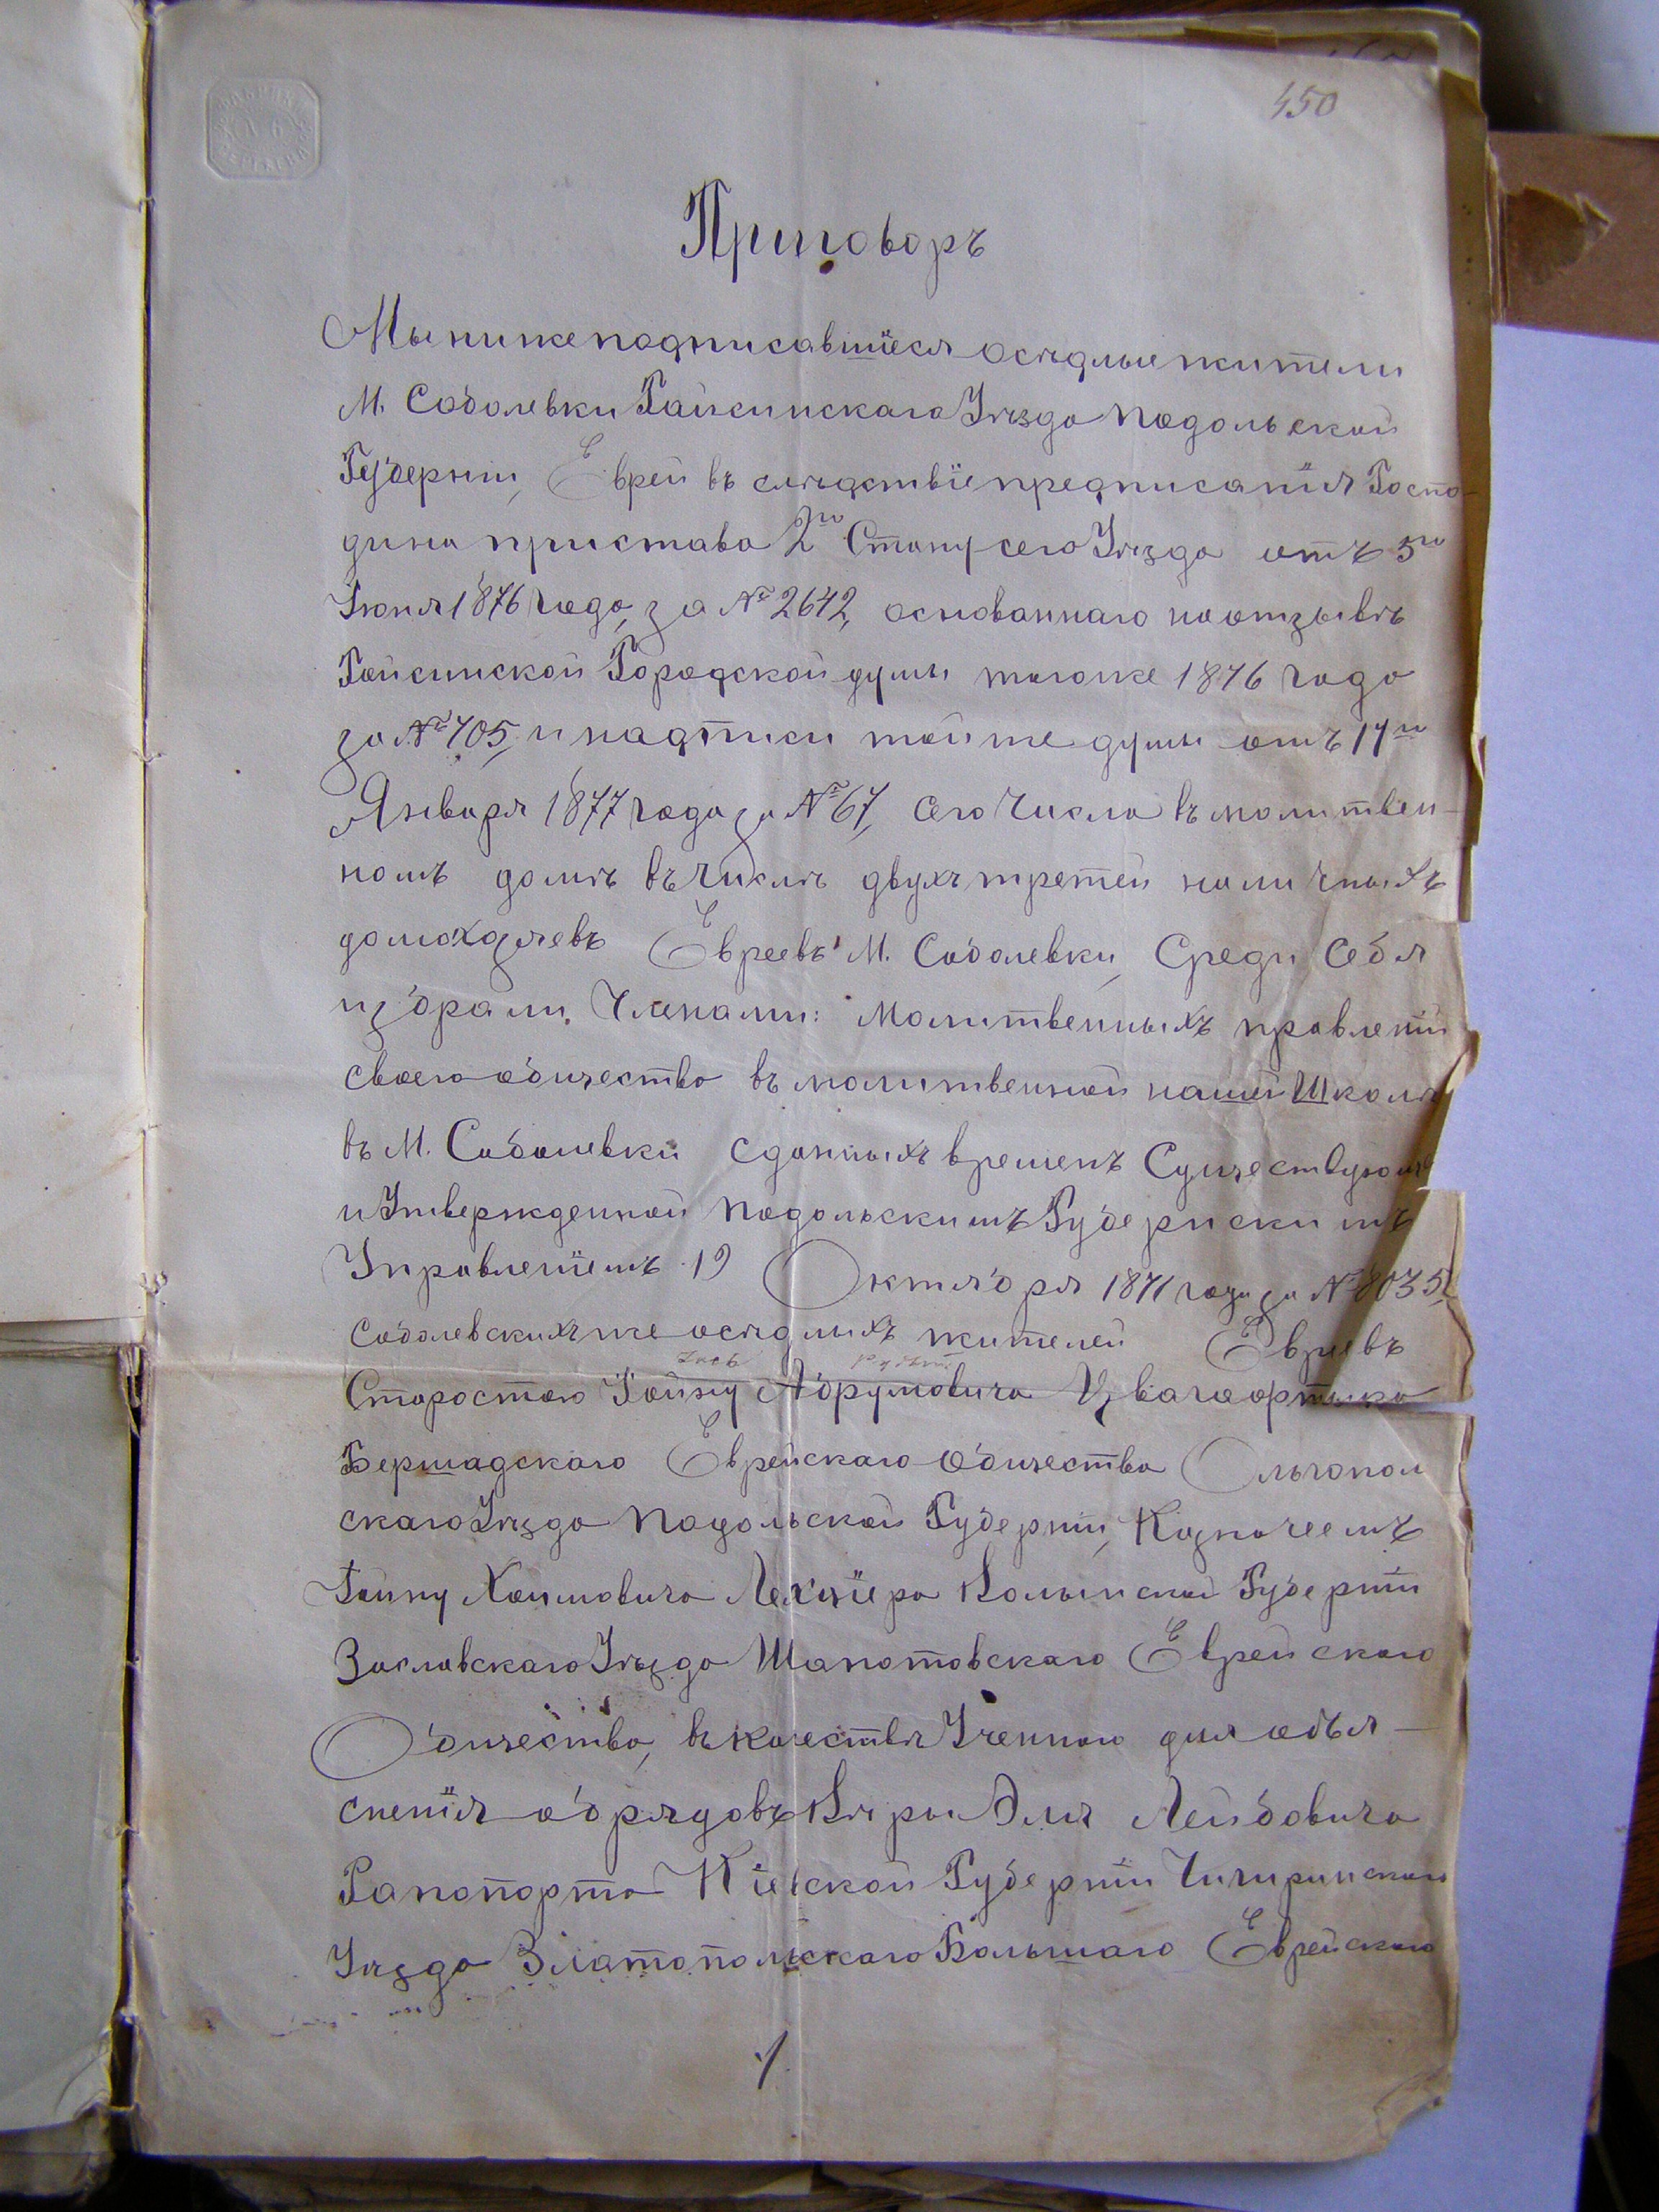 450
Приговоръ
Мы нижеподписавшіеся осѣдлые жители
М. Соболевки Гайсинскаго Уѣзда Подольской
Губерніи, Евреи въ слѣдствіе предписанія Госпо-
дина пристава 2го Стану сего Уѣзда отъ 5го
Іюня 1876 года, за № 2642, основаннаго на отзывѣ
Гайсинской Городской думы тогоже 1876 года
за № 705, и надписи тойже думы отъ 17го
Января 1877 года за № 67, сего Числа въ молитвен-
номъ домѣ въ числѣ двухъ третей наличныхъ
домохозяевъ Евреевъ М. Соболевки, Среди Себя
избрали, Членами: Молитвенныхъ правленій
своего общества въ молитвенной нашей Школѣ
въ М. Соболевки сдавныхъ временъ Существующе
и Утвержденной Подольскимъ Губернскимъ
Управленіемъ 19 Октября 1871 года за № 8035,
соболевскихъ же осѣдлыхъ жителей Евреевъ
Старостою Абрумовича
Бершадскаго Еврейскаго Общества Ольгопол
скаго Уѣзда Подольской Губерніи, Казначеемъ
Хаимовича Волынской Губерніи
Заславскаго Уѣзда Еврейскаго
Общества, въ качествѣ Ученнаго для объя-
сненія обрядовъ Вѣры Эля Лейбовича
Рапопорта Кіевской Губерніи Чигиринскаго
Уѣзда Златопольскаго Большаго Еврейскаго